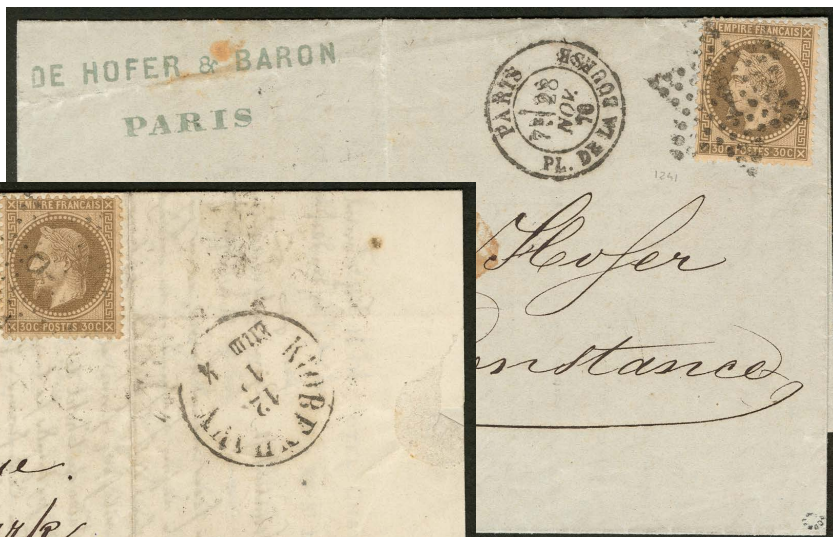 DE HOFER & BARON
PARIS
PARIS
PL. DE LA BOURSE
28
NOV.
70
EMPIRE FRANÇAIS
30C POSTES 30C
1241
Hofer
Constance
EMPIRE FRANÇAIS
30C POSTES 30C
KIØBENHAVN